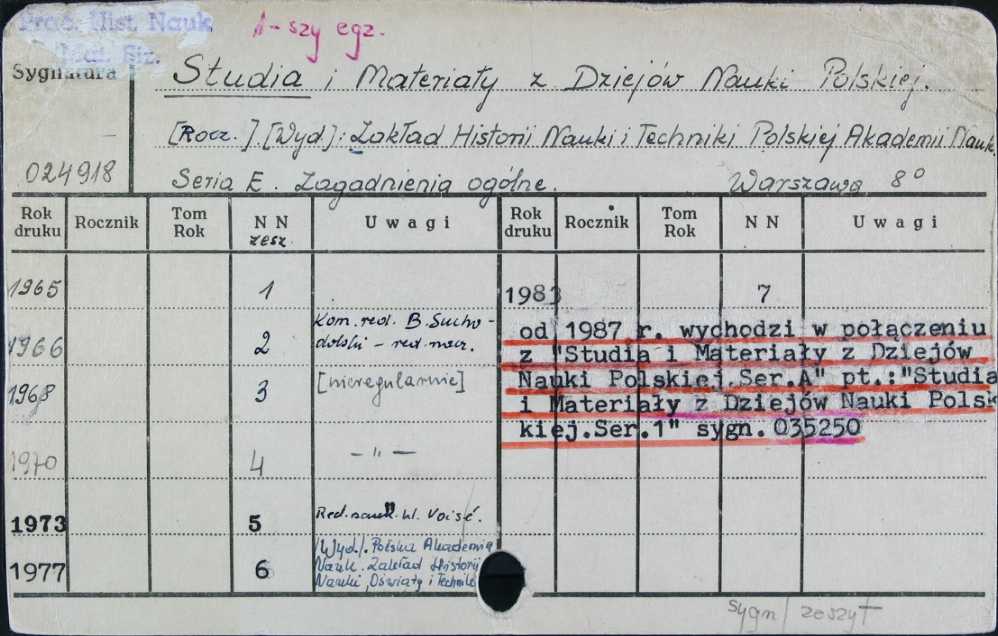 Prac. Hist. Nauk
Mat. Prz.
1-szy egz.
Sygnatura
Studia i Materiały z Dziejów Nauki Polskiej.
[Rocz.]. [Wyd]: Zakład Historii Nauki i Techniki Polskiej Akademii Nauk.
024918
Seria E. Zagadnienia ogólne. Warszawa 8°
Rok druku Rocznik Tom Rok NN zesz. Uwagi Rok druku Rocznik Tom Rok NN
1965 1
1983 7
1966 2 Kom. red. B. Sucho-
dolski - red. nacz.
1968 3 [nieregularnie]
1970 4 - " -
1973 5 Red. nauk. W. Voisé.
1977 6 /Wyd/. Polska Akademia
Nauk. Zakład Historii
Nauki, Oświaty i Techniki
Uwagi
od 1987 r. wychodzi w połączeniu
z "Studia i Materiały z Dziejów
Nauki Polskiej.Ser.A" pt.:"Studia
i Materiały z Dziejów Nauki Pols
kiej.Ser.1" sygn.035250
sygn/ zeszyt